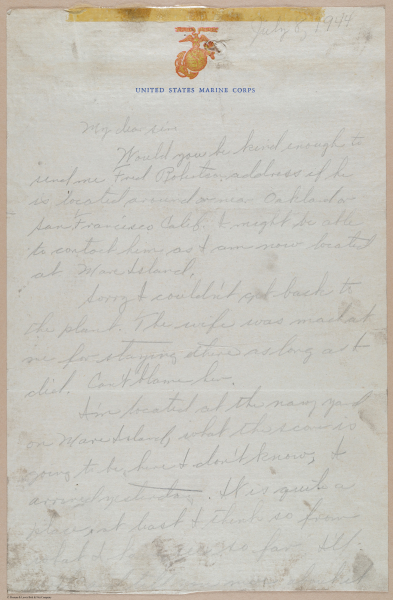 July 8, 1944
UNITED STATES MARINE CORPS
My dear sir
Would you be kind enough to
send me Fred address if he
is located around or near Oakland or
San Francisco Calif. I might be able
to contact him as I am now located
at Mare Island.
Sorry I couldn't get back to
the plant. The wife was mad at
me for staying there as long as I
did. Can't blame her.
I'm located at the navy yard
on Mare Island, what the score is
going to be here I don't know, I
arrived yesterday. It is quite a
place at least I think so from
what I so far.